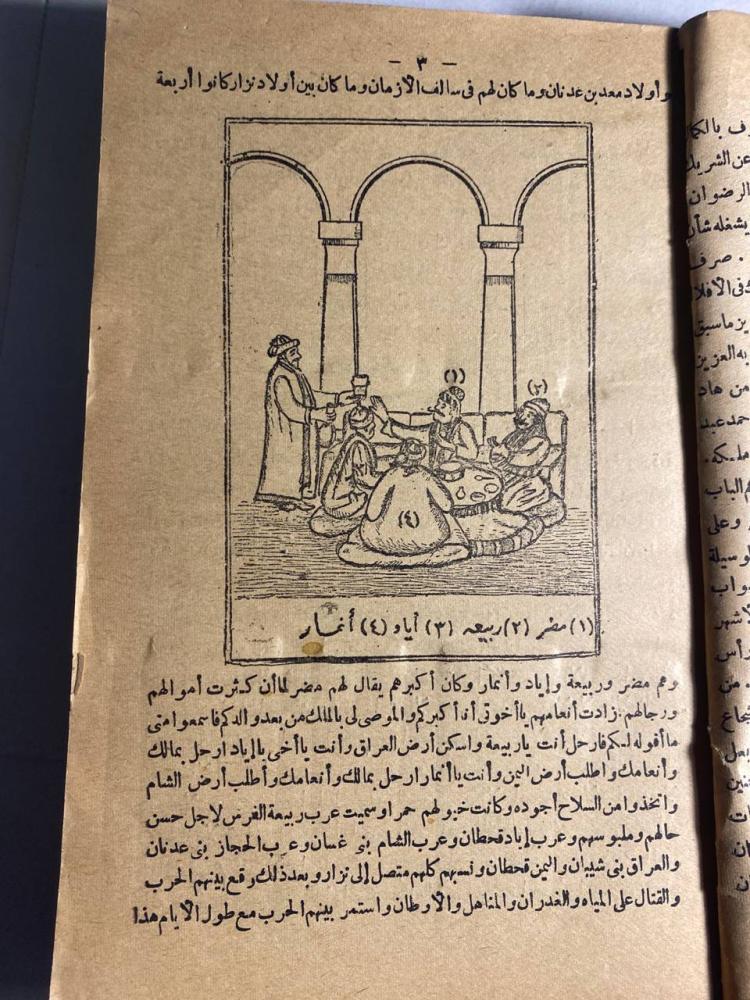 - ٣ -
وأولاد معد بن عدنان وما كان لهم فى سالف الأزمان وما كان بين أولاد نزار كانوا أربعة
(١)
(٢)
(٤)
(١) مضر (٢) ربيعه (٣) أياد (٤) أنمار
وهم مضر وربيعة وإياد وأنمار وكان أكبرهم يقال لهم مضر لما أن كثرت أموالهم
ورجالهم . زادت أنعامهم يا أخوتى أنا أكبركم والموصى لى بالملك من بعد والدكم فاسمعوا متى
ما أقوله لكم فارحل أنت يا ربيعة واسكن أرض العراق وأنت يا أخى يا إياد ارحل بمالك
وأنعامك واطلب أرض اليمن وأنت يا أنمار ارحل بمالك وأنعامك وأطلب أرض الشام
واتخذوا من السلاح أجوده وكانت خيولهم حمرا وسميت عرب ربيعة الفرس لاجل حسن
حالهم وملبوسهم وعرب إياد قحطان وعرب الشام بنى غسان وعرب الحجاز بنى عدنان
والعراق بنى شيبان واليمن قحطان ونسبهم كلهم متصل إلى نزار وبعد ذلك وقع بينهم الحرب
والقتال على المياه والغدران والمناهل والاوطان واستمر بينهم الحرب مع طول الايام هذا
عن الشريك
الرضوان
يشغله شأن
. صرف
يز ماسبق
به العزيز
من هاد
حمد عبد
الباب
وعلى
وسيلة
واب
لاشهر
رأس
من